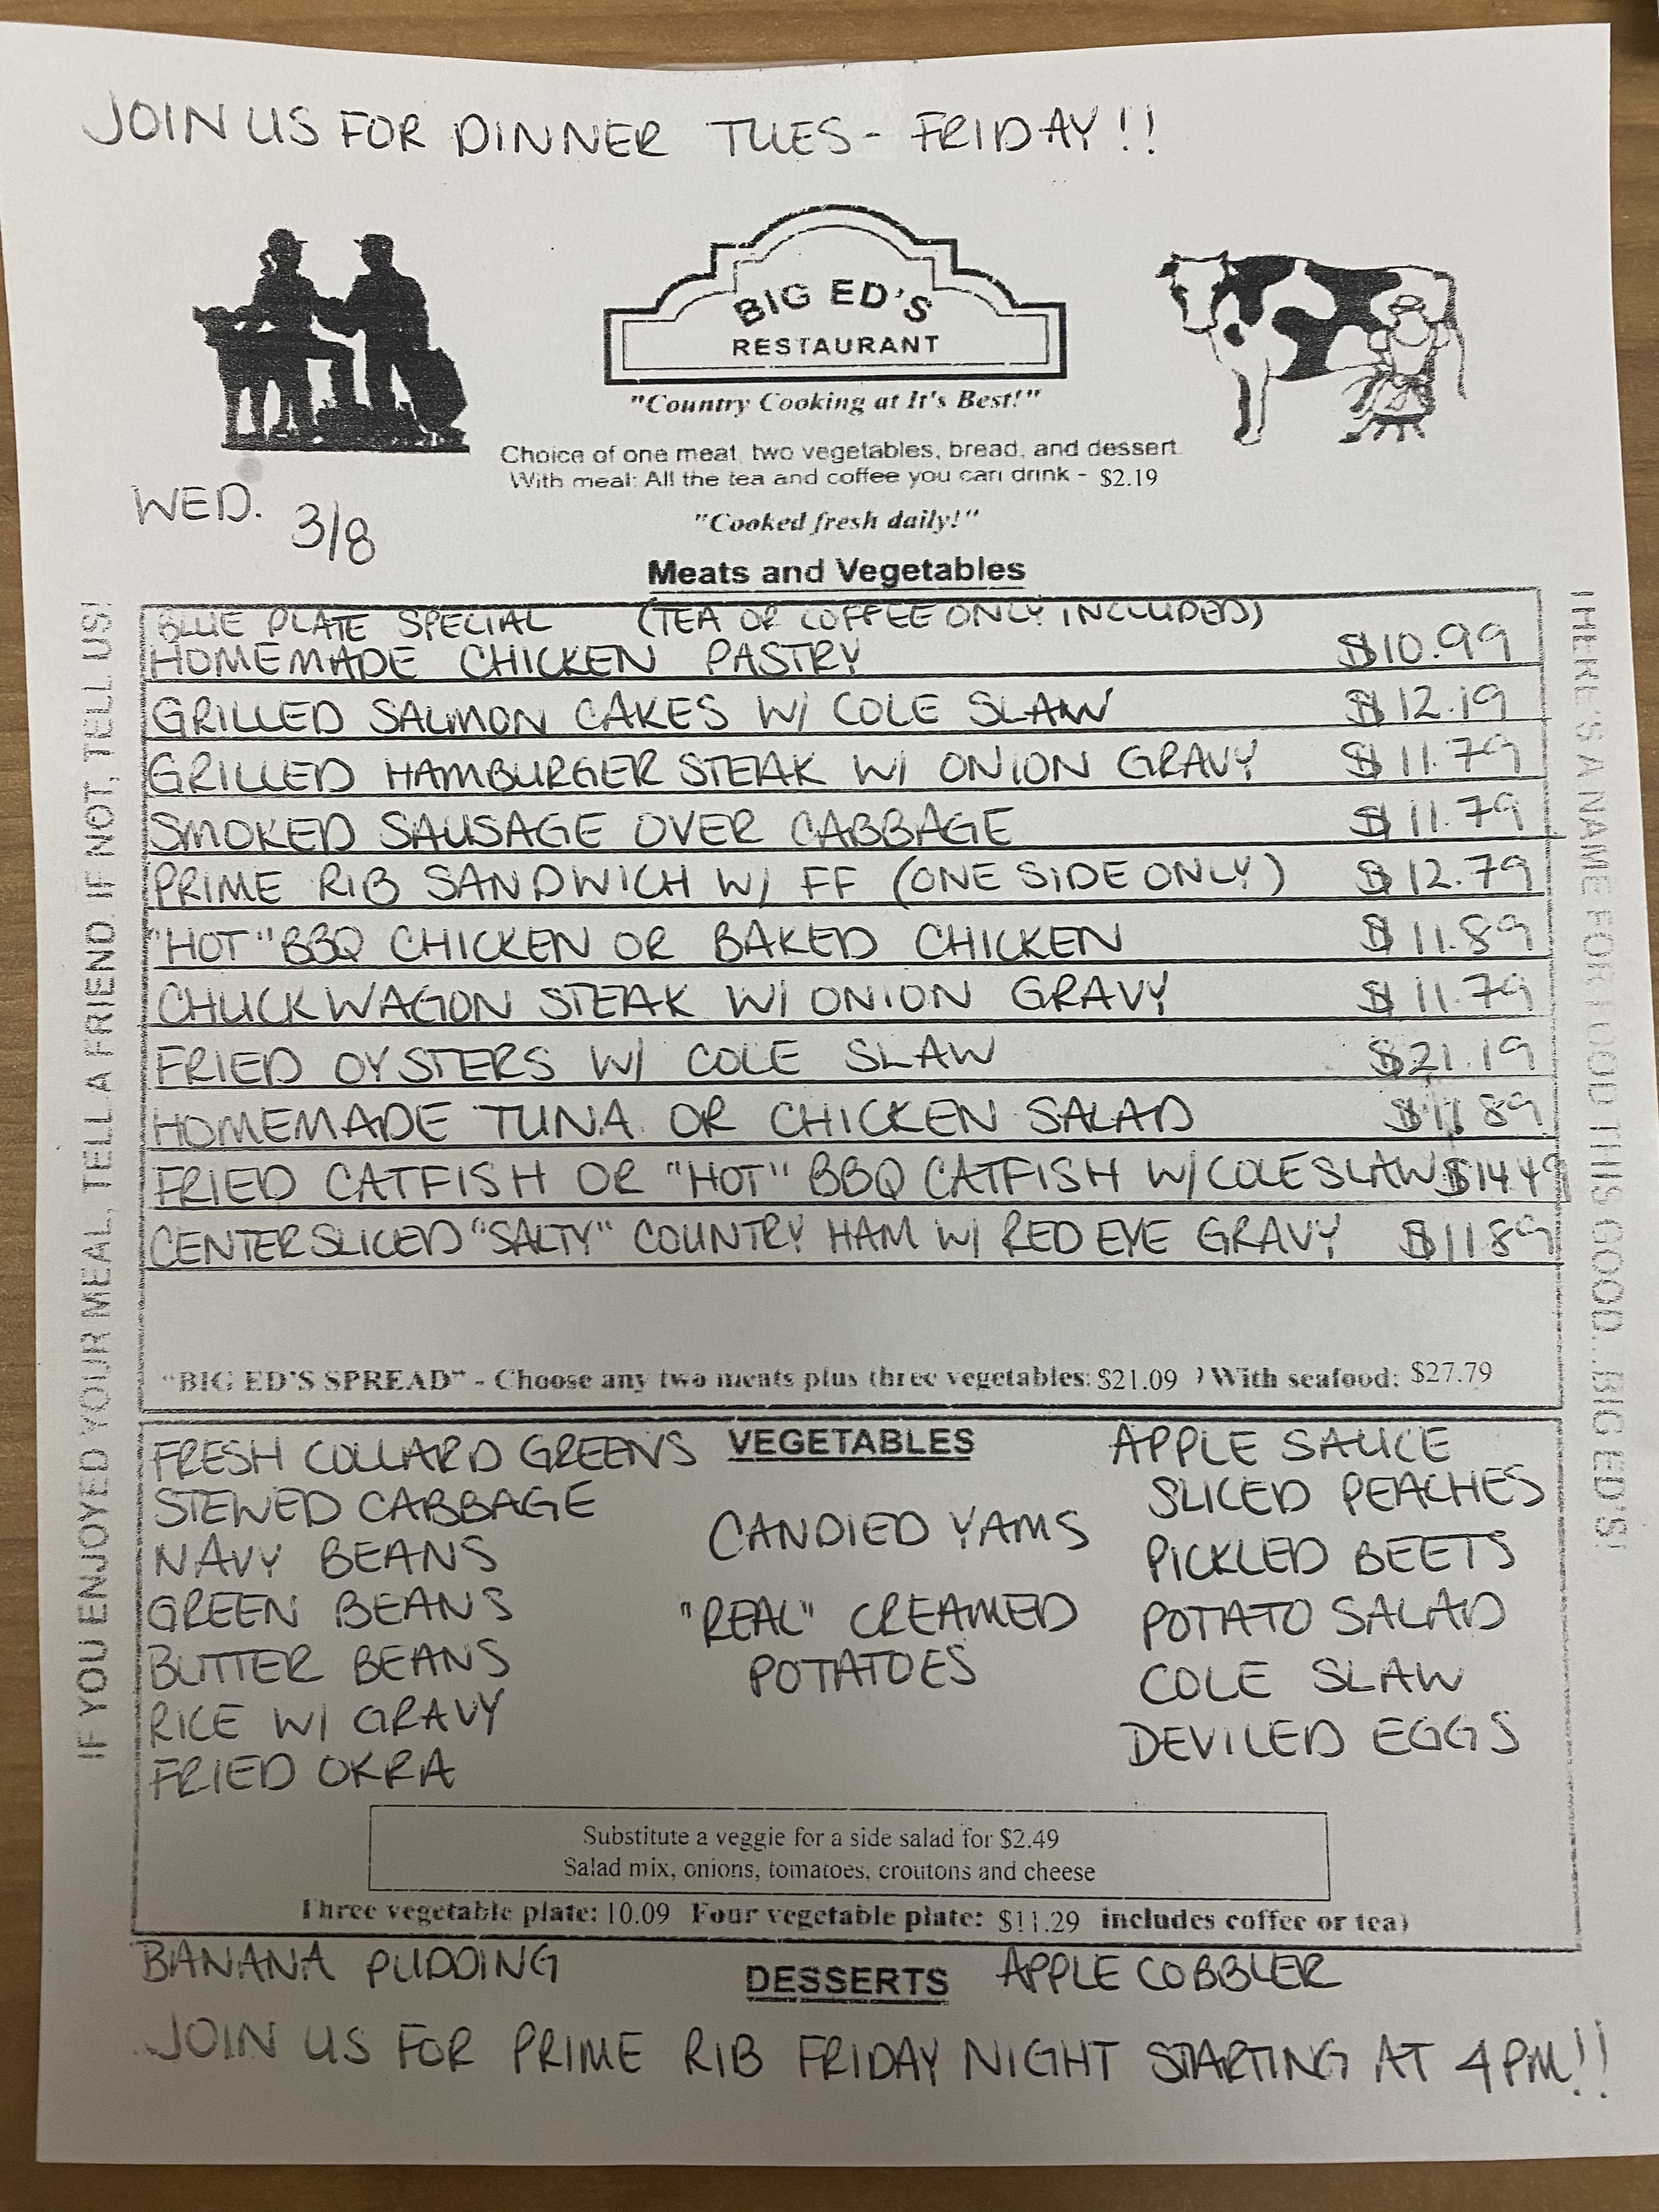 JOIN US FOR DINNER TUES - FRIDAY!!
BIG ED'S
RESTAURANT
"Country Cooking at It's Best!"
Choice of one meat, two vegetables, bread, and dessert.
With meal: All the tea and coffee you can drink - $2.19
WED. 3/8
"Cooked fresh daily!"
Meats and Vegetables
BLUE PLATE SPECIAL (TEA OR COFFEE ONLY INCLUDED)
HOMEMADE CHICKEN PASTRY $10.99
GRILLED SALMON CAKES W/ COLE SLAW $12.19
GRILLED HAMBURGER STEAK W/ ONION GRAVY $11.79
SMOKED SAUSAGE OVER CABBAGE $11.79
PRIME RIB SANDWICH W/ FF (ONE SIDE ONLY) $12.79
"HOT" BBQ CHICKEN OR BAKED CHICKEN $11.89
CHUCKWAGON STEAK W/ ONION GRAVY $11.79
FRIED OYSTERS W/ COLE SLAW $21.19
HOMEMADE TUNA OR CHICKEN SALAD $11.89
FRIED CATFISH OR "HOT" BBQ CATFISH W/ COLE SLAW $14.49
CENTER SLICED "SALTY" COUNTRY HAM W/ RED EYE GRAVY $11.89
"BIG ED'S SPREAD" - Choose any two meats plus three vegetables: $21.09 ) With seafood: $27.79
VEGETABLES
FRESH COLLARD GREENS
STEWED CABBAGE
NAVY BEANS
GREEN BEANS
BUTTER BEANS
RICE W/ GRAVY
FRIED OKRA
CANDIED YAMS
"REAL" CREAMED
POTATOES
APPLE SAUCE
SLICED PEACHES
PICKLED BEETS
POTATO SALAD
COLE SLAW
DEVILED EGGS
Substitute a veggie for a side salad for $2.49
Salad mix, onions, tomatoes, croutons and cheese
Three vegetable plate: 10.09 Four vegetable plate: $11.29 includes coffee or tea)
BANANA PUDDING
DESSERTS
APPLE COBBLER
JOIN US FOR PRIME RIB FRIDAY NIGHT STARTING AT 4PM!!
IF YOU ENJOYED YOUR MEAL, TELL A FRIEND. IF NOT, TELL US!
THERE'S A NAME FOR FOOD THIS GOOD...BIG ED'S!